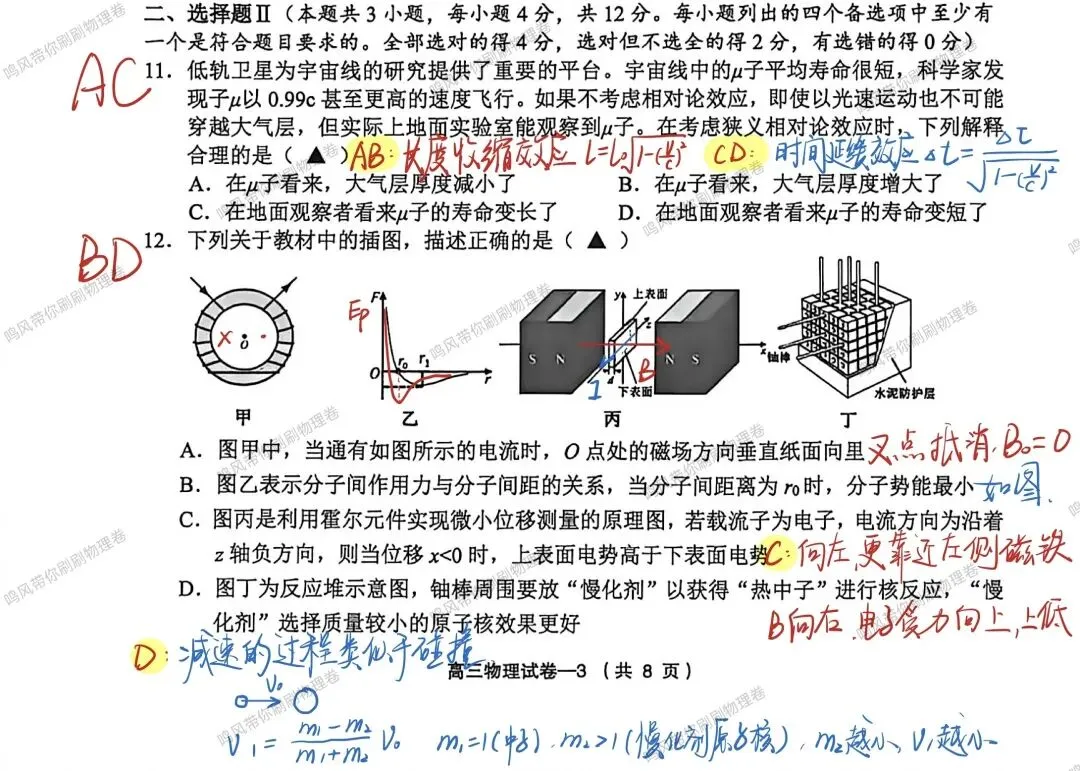 二、选择题Ⅱ（本题共 3 小题，每小题 4 分，共 12 分。每小题列出的四个备选项中至少有
一个是符合题目要求的。全部选对的得 4 分，选对但不选全的得 2 分，有选错的得 0 分）
AC
11. 低轨卫星为宇宙线的研究提供了重要的平台。宇宙线中的μ子平均寿命很短，科学家发
现子μ以 0.99c 甚至更高的速度飞行。如果不考虑相对论效应，即使以光速运动也不可能
穿越大气层，但实际上地面实验室能观察到μ子。在考虑狭义相对论效应时，下列解释
合理的是（ ▲ ） AB: 长度收缩效应 l=l₀√1-(v/c)² CD: 时间延缓效应 Δt=Δτ/√1-(v/c)²
A．在μ子看来，大气层厚度减小了 B．在μ子看来，大气层厚度增大了
C．在地面观察者看来μ子的寿命变长了 D．在地面观察者看来μ子的寿命变短了
BD
12. 下列关于教材中的插图，描述正确的是（ ▲ ）
× O ·
甲
Ep F O r₀ r₁ r
乙
S N y 上表面 z I d 下表面 B N S x
丙
铀棒 水泥防护层
丁
A．图甲中，当通有如图所示的电流时，O 点处的磁场方向垂直纸面向里 叉点抵消，B₀=0
B．图乙表示分子间作用力与分子间距的关系，当分子间距离为 r₀ 时，分子势能最小 如图.
C．图丙是利用霍尔元件实现微小位移测量的原理图，若载流子为电子，电流方向为沿着
z 轴负方向，则当位移 x<0 时，上表面电势高于下表面电势 C: 向左，更靠近左侧磁铁
D．图丁为反应堆示意图，铀棒周围要放“慢化剂”以获得“热中子”进行核反应，“慢
化剂”选择质量较小的原子核效果更好 B向右，电子受力向上，上低
D: 减速的过程类似于碰撞
高三物理试卷—3 （共 8 页）
V₀
V₁=(m₁-m₂)/(m₁+m₂) V₀ m₁=1(中子)，m₂>1(慢化剂原子核)，m₂越小，V₁越小
鸣风带你刷刷物理卷